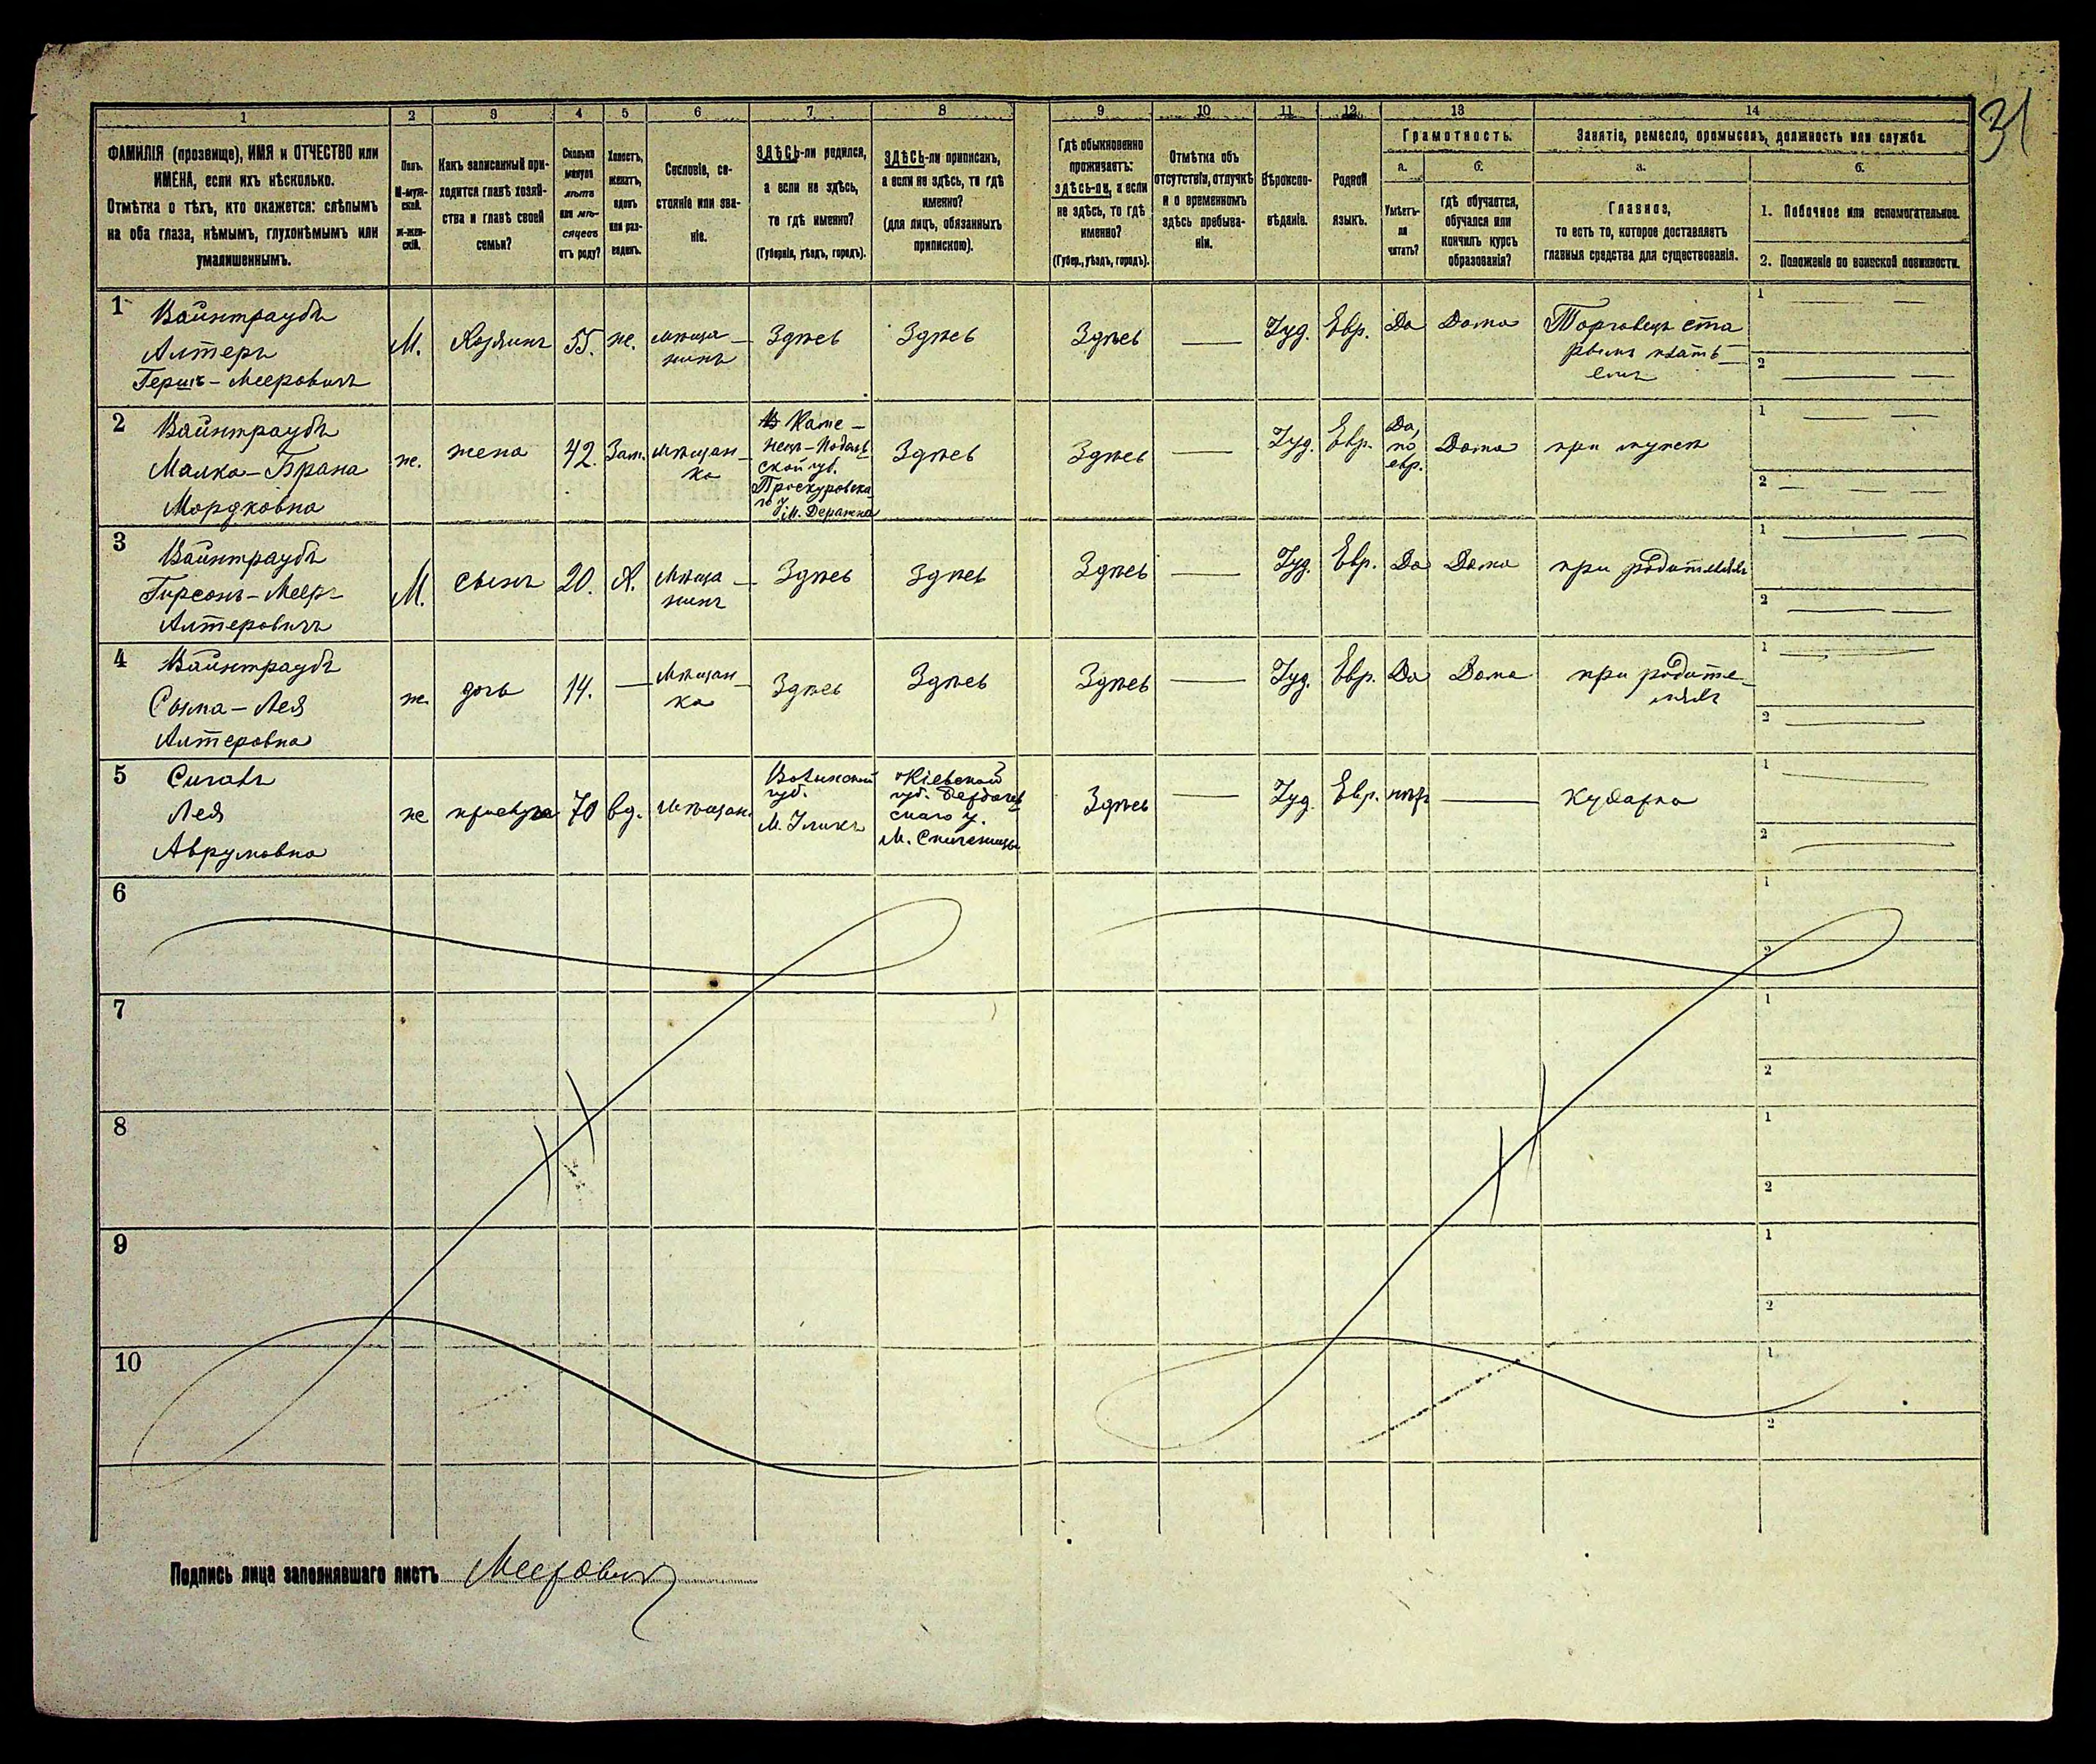 31
1 2 3 4 5 6 7 8 9 10 11 12 13 14
ФАМИЛІЯ (прозвище), ИМЯ и ОТЧЕСТВО или
ИМЕНА, если ихъ нѣсколько.
Отмѣтка о тѣхъ, кто окажется: слѣпымъ
на оба глаза, нѣмымъ, глухонѣмымъ или
умалишеннымъ.
Полъ.
М-муж-
ской.
Ж-жен-
скій.
Какъ записанный при-
ходится главѣ хозяй-
ства и главѣ своей
семьи?
Сколько
минуло
лѣтъ
или мѣ-
сяцевъ
отъ роду?
Холостъ,
женатъ,
вдовъ
или раз-
веденъ.
Сословіе, со-
стояніе или зва-
ніе.
ЗДѢСЬ-ли родился,
а если не здѣсь,
то гдѣ именно?
(Губернія, уѣздъ, городъ).
ЗДѢСЬ-ли приписанъ,
а если не здѣсь, то гдѣ
именно?
(для лицъ, обязанныхъ
припискою).
Гдѣ обыкновенно
проживаетъ:
здѣсь-ли, а если
не здѣсь, то гдѣ
именно?
(Губер., уѣздъ, городъ).
Отмѣтка объ
отсутствіи, отлучкѣ
и о временномъ
здѣсь пребыва-
ніи.
Вѣроиспо-
вѣданіе.
Родной
языкъ.
Грамотность.
а.
Умѣетъ-
ли
читать?
б.
гдѣ обучается,
обучался или
кончилъ курсъ
образованія?
Занятіе, ремесло, промыселъ, должность или служба.
а.
Главное,
то есть то, которое доставляетъ
главныя средства для существованія.
б.
1. Побочное или вспомогательное.
2. Положеніе по воинской повинности.
1
Вайнтраубъ
Алтеръ
Гершъ-Мееровичъ
М.
Хозяинъ
55.
ж.
мѣща-
нинъ
Здѣсь
Здѣсь
Здѣсь
Іуд.
Евр.
Да
Дома
Торговецъ ста
рымъ плать-
емъ
1
2
2
Вайнтраубъ
Малка-Брана
Мордковна
ж.
жена
42.
Зам.
мѣщан-
ка
В Каме-
нецъ-Подоль
ской губ.
Проскуровска-
го у. М. Деражна
Здѣсь
Здѣсь
Іуд.
Евр.
Да,
по
евр.
Дома
при мужѣ
1
2
3
Вайнтраубъ
Гирсонъ-Меер-
Алтеровичъ
М.
сынъ
20.
Х.
мѣща-
нинъ
Здѣсь
Здѣсь
Здѣсь
Іуд.
Евр.
Да
Дома
при родителяхъ
1
2
4
Вайнтраубъ
Сима-Лея
Алтеровна
ж.
дочь
14.
Мѣщан-
ка
Здѣсь
Здѣсь
Здѣсь
Іуд.
Евр.
Да
Дома
при родите-
ляхъ
1
2
5
Лея
Аврумовна
ж
прислуга
70
вд.
мѣщан.
Волынской
губ.
Кіевской
губ. Бердичев
скаго у.
Здѣсь
Іуд.
Евр.
нѣтъ
Кухарка
1
2
6
1
2
7
1
2
8
1
2
9
1
2
10
1
2
Подпись лица заполнявшаго листъ Мееровичъ